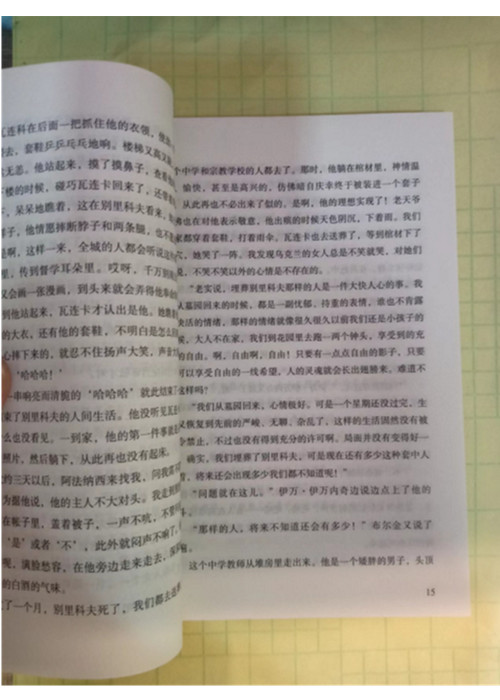 瓦连科在后面一把抓住他的衣领，使
去，套鞋乒乒乓乓地响。楼梯又高又
无恙。他站起来，摸了摸鼻子，查看
楼的时候，碰巧瓦连卡回来了，还带
，呆呆地瞧着，这在别里科夫看来，
子，他情愿摔断脖子和两条腿，也不
是啊，这样一来，全城的人都会听说这
里，传到督学耳朵里。哎呀，千万别
又会画一张漫画，到头来就会弄得他奉
到他站起来，瓦连卡才认出是他。她瞧着
的大衣，还有他的套鞋，不明白是怎么回
心摔下来的，就忍不住扬声大笑，声音
‘哈哈哈！’
串响亮而清脆的‘哈哈哈’就此结束了
束了别里科夫的人间生活。他没听见瓦
么也没看见。一到家，他的第一件事就是
照片，然后躺下，从此再也没有起床。
约三天以后，阿法纳西来找我，问我要不
为据他说，他的主人不大对头。我走到
在帐子里，盖着被子，一声不吭，不管
‘是’或者‘不’，此外就闷声不响了。
观，满脸愁容，在他旁边走来走去，深
的白酒的气味。
了一个月，别里科夫死了，我们都去送
个中学和宗教学校的人都去了。那时，他躺在棺材里，神情温
愉快，甚至是高兴的，仿佛暗自庆幸终于被装进一个套子
从此再也不必出来了似的。是啊，他的理想实现了！老天爷
也在对他表示敬意，他出殡的时候天色阴沉，下着雨。我们
家都穿着套鞋，打着雨伞。瓦连卡也去送葬了，等到棺材下了
，她哭了一阵。我发现乌克兰的女人总是不笑就哭，对她们
是，不哭不笑以外的心情是不存在的。
“老实说，埋葬别里科夫那样的人是一件大快人心的事。我
人墓园回来的时候，都是一副忧郁、持重的表情，谁也不肯露
快活的情绪，那样的情绪就像很久很久以前我们还是小孩子的
候，大人不在家，我们到花园里去跑一两个钟头，享受到的充
的自由。啊，自由啊，自由！只要有一点点自由的影子，只要
可以享受自由的一线希望，人的灵魂就会长出翅膀来。难道不
这样吗？
“我们从墓园回来，心情极好。可是一个星期还没过完，生
又恢复到先前的严峻、无聊、杂乱了，这样的生活固然没有被
令禁止，不过也没有得到充分的许可啊。局面并没有变得好一
确实，我们埋葬了别里科夫，可是现在还有多少这种套中人
着，将来还会出现多少我们都不知道呢！”
“问题就在这儿。”伊万·伊万内奇边说边点上了他的
斗。
“那样的人，将来不知道还会有多少！”布尔金又说了
。
这个中学教师从堆房里走出来。他是一个矮胖的男子，头顶
15